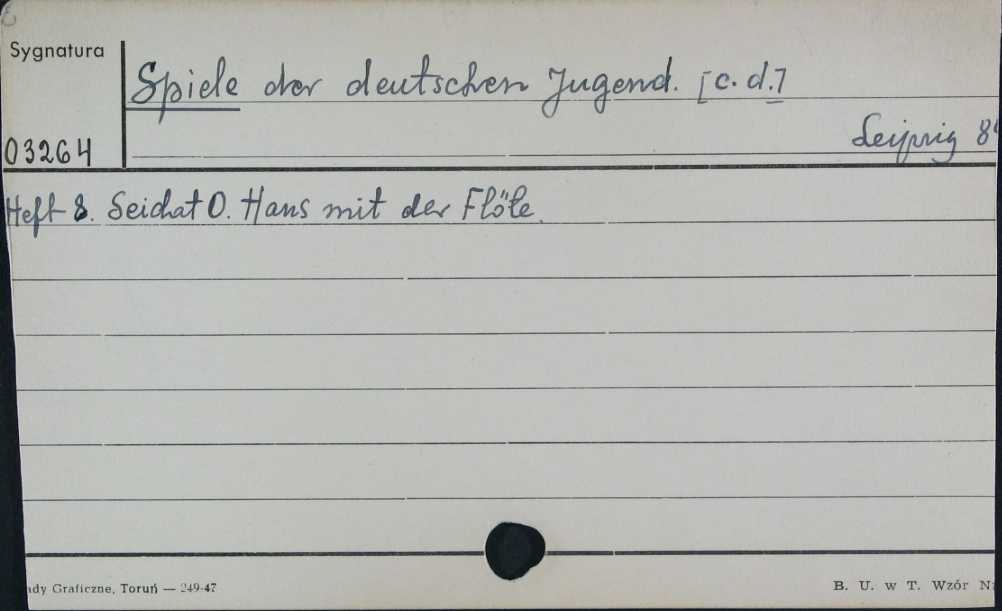 Sygnatura
Spiele der deutschen Jugend. [c.d.]
03264
Leipzig 8
Heft 8. Seichat O. Hans mit der Flöte.
ady Graficzne, Toruń — 249-47
B. U. w T. Wzór N